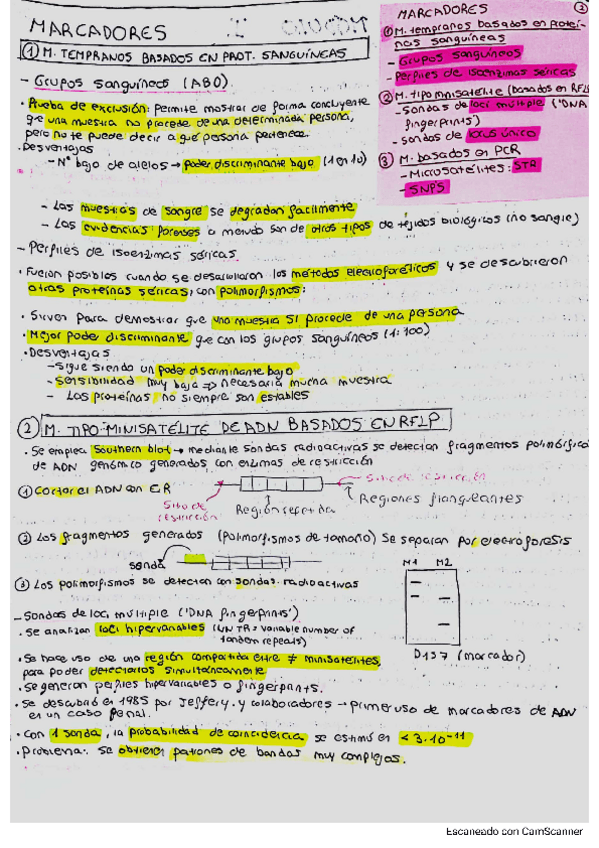 MARCADORES I
① M. TEMPRANOS BASADOS EN PROT. SANGUÍNEAS
- Grupos sanguíneos (ABO).
· Prueba de exclusión: Permite mostrar de forma concluyente
que una muestra no procede de una determinada persona,
pero no te puede decir a qué persona pertenece.
· Desventajas
- Nº bajo de alelos → poder discriminante bajo (1 en 10)
- Las muestras de sangre se degradan facilmente
- Las evidencias forenses a menudo son de otros tipos de tejidos biológicos (no sangre)
- Perfiles de isoenzimas séricas.
· Fueron posibles cuando se desarrollaron los métodos electroforéticos y se descubrieron
otras proteínas séricas, con polimorfismos:
· Sirven para demostrar que una muestra SI procede de una persona
· Mejor poder discriminante que con los grupos sanguíneos (1:100)
· Desventajas
- Sigue siendo un poder discriminante bajo
- Sensibilidad muy baja ⇒ necesaria mucha muestra
- Las proteínas no siempre son estables
MARCADORES ①
① M. tempranos basados en proteí-
nas sanguíneas
- Grupos sanguíneos
- Perfiles de isoenzimas séricas
② M. tipo minisatélite (basados en RFLP
- Sondas de loci múltiple ('DNA
fingerprints')
- Sondas de locus único
③ M. basados en PCR
- Microsatélites: STR
- SNPS
② M. TIPO MINISATÉLITE DE ADN BASADOS EN RFLP
· Se emplea Southern blot → mediante sondas radioactivas se detectan fragmentos polimórfico
de ADN genómico generados con enzimas de restricción
① Cortar el ADN con ER
Sitio de restricción
Sitio de
restricción
Región repetida
Regiones flanqueantes
② Los fragmentos generados (polimorfismos de tamaño) se separan por electroforesis
sonda
M1 M2
③ Los polimorfismos se detectan con sondas radioactivas
D1S7 (marcador)
- Sondas de loci múltiple ('DNA fingerprints')
· Se analizan loci hipervariables (VNTR: variable number of
tandem repeats)
· Se hace uso de una región compartida entre ≠ minisatélites,
para poder detectarlos simultáneamente
· Se generan perfiles hipervariables o fingerprints.
· Se descubrió en 1985 por Jeffery. y colaboradores → primer uso de marcadores de ADN
en un caso penal.
· Con 1 sonda, la probabilidad de coincidencia se estimó en < 3·10⁻¹¹
· Problema: se obtienen patrones de bandas muy complejos.
Escaneado con CamScanner